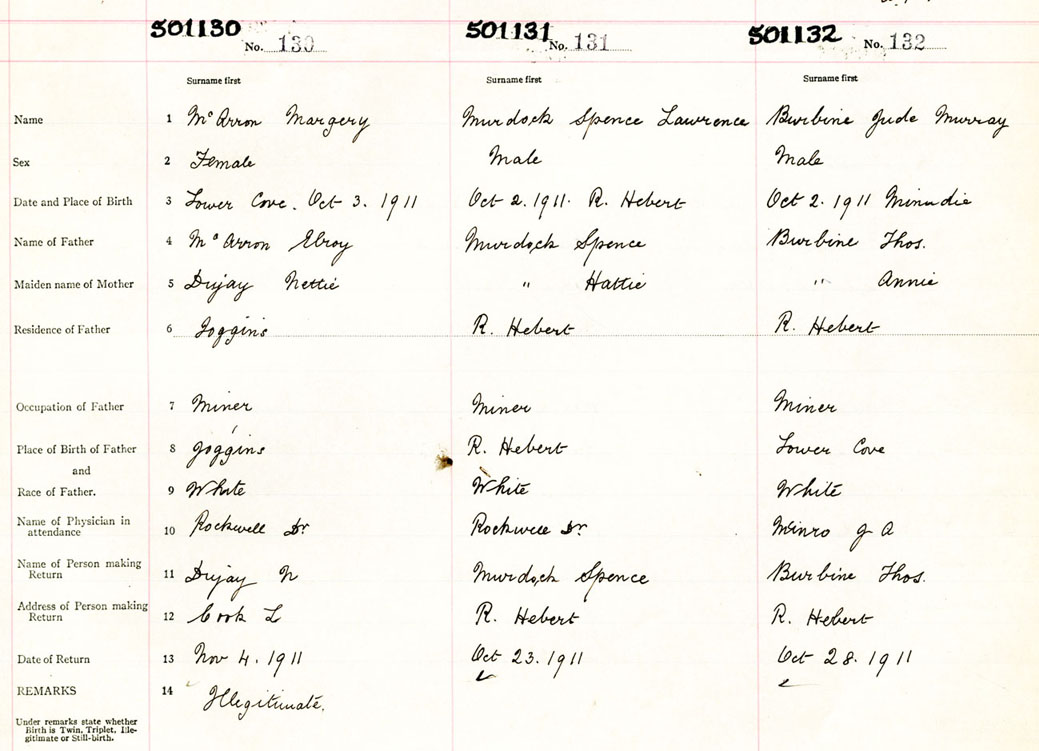 501130 No. 130 501131 No. 131 501132 No. 132
Surname first Surname first Surname first
Name 1 McArron Margery Murdock Spence Lawrence Burbine Jude Murray
Sex 2 Female Male Male
Date and Place of Birth 3 Lower Cove. Oct 3. 1911 Oct 2. 1911. R. Hebert Oct 2. 1911 Minudie
Name of Father 4 McArron Elroy Murdock Spence Burbine Thos.
Maiden name of Mother 5 Dujay Nettie " Hattie " Annie
Residence of Father 6 Joggins R. Hebert R. Hebert
Occupation of Father 7 Miner Miner Miner
Place of Birth of Father 8 Joggins R. Hebert Lower Cove
and
Race of Father. 9 White White White
Name of Physician in
attendance 10 Rockwell Dr Rockwell Dr. Munro J A
Name of Person making
Return 11 Dujay N Murdock Spence Burbine Thos.
Address of Person making
Return 12 Cook L R. Hebert R. Hebert
Date of Return 13 Nov 4. 1911 Oct 23. 1911 Oct 28. 1911
REMARKS 14 Illegitimate.
Under remarks state whether
Birth is Twin, Triplet, Ille-
gitimate or Still-birth.